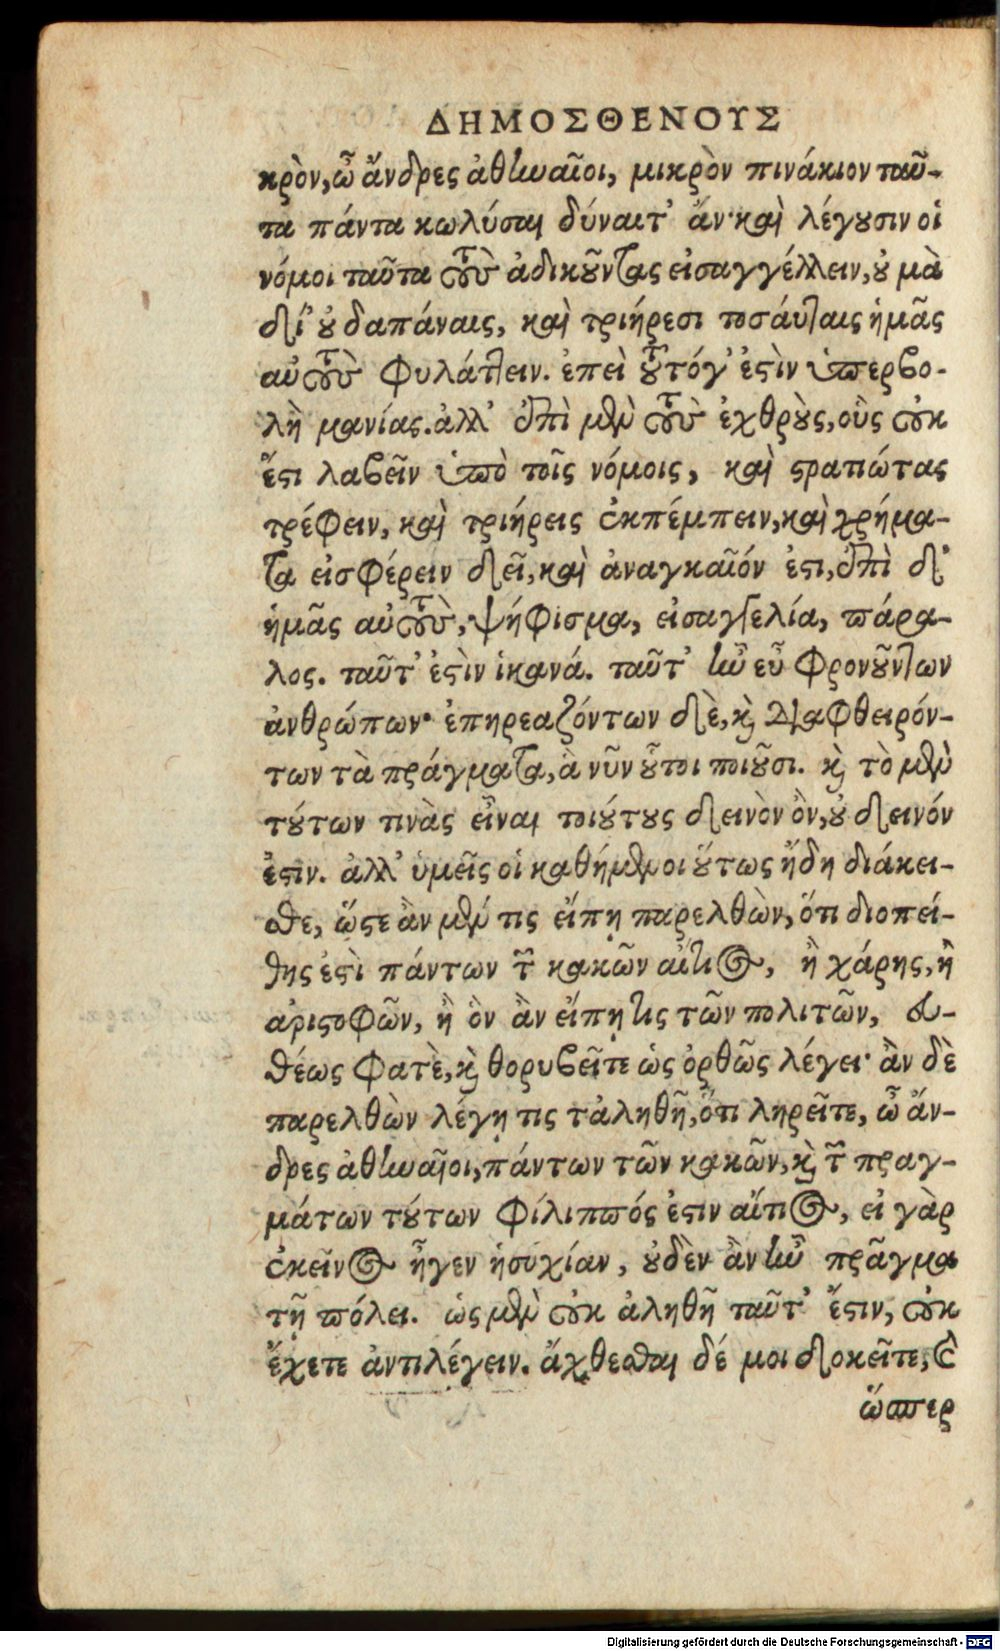 ΔΗΜΟΣΘΕΝΟΥΣ
κρὸν, ὦ ἄνδρες ἀθηναῖοι, μικρὸν πινάκιον ταῦ-
τα πάντα κωλύσαι δύναιτ' ἄν· καὶ λέγουσιν οἱ
νόμοι ταῦτα τοὺς ἀδικοῦντας εἰσαγγέλλειν, οὐ μὰ
δί' οὐ δαπάναις, καὶ τριήρεσι τοσαύταις ἡμᾶς
αὐτοὺς φυλάττειν. ἐπεὶ τοῦτό γ' ἐστὶν ὑπερβο-
λὴ μανίας. ἀλλ' ἐπὶ μὲν τοὺς ἐχθροὺς, οὓς οὐκ
ἔστι λαβεῖν ὑπὸ τοῖς νόμοις, καὶ στρατιώτας
τρέφειν, καὶ τριήρεις ἐκπέμπειν, καὶ χρήμα-
τα εἰσφέρειν δεῖ, καὶ ἀναγκαῖόν ἐστι, ἐπὶ δ'
ἡμᾶς αὐτοὺς, ψήφισμα, εἰσαγγελία, πάρα-
λος. ταῦτ' ἐστὶν ἱκανά. ταῦτ' ἦν εὖ φρονούντων
ἀνθρώπων· ἐπηρεαζόντων δὲ, καὶ διαφθειρόν-
των τὰ πράγματα, ἃ νῦν οὗτοι ποιοῦσι. καὶ τὸ μὲν
τούτων τινὰς εἶναι τοιούτους δεινὸν ὂν, οὐ δεινόν
ἐστιν. ἀλλ' ὑμεῖς οἱ καθήμενοι οὕτως ἤδη διάκει-
σθε, ὥστε ἂν μέν τις εἴπῃ παρελθὼν, ὅτι διοπεί-
θης ἐστὶ πάντων τῶν κακῶν αἴτιος, ἢ χάρης, ἢ
ἀριστοφῶν, ἢ ὃν ἂν εἴπῃ τις τῶν πολιτῶν, εὐ-
θέως φατὲ, καὶ θορυβεῖτε ὡς ὀρθῶς λέγει· ἂν δὲ
παρελθὼν λέγῃ τις τἀληθῆ, ὅτι ληρεῖτε, ὦ ἄν-
δρες ἀθηναῖοι, πάντων τῶν κακῶν, καὶ τῶν πραγ-
μάτων τούτων φίλιππός ἐστιν αἴτιος, εἰ γὰρ
ἐκεῖνος ἦγεν ἡσυχίαν, οὐδὲν ἂν ἦν πρᾶγμα
τῇ πόλει. ὡς μὲν οὐκ ἀληθῆ ταῦτ' ἔστιν, οὐκ
ἔχετε ἀντιλέγειν. ἄχθεσθαι δέ μοι δοκεῖτε, καὶ
ὥσπερ
Digitalisierung gefördert durch die Deutsche Forschungsgemeinschaft - DFG